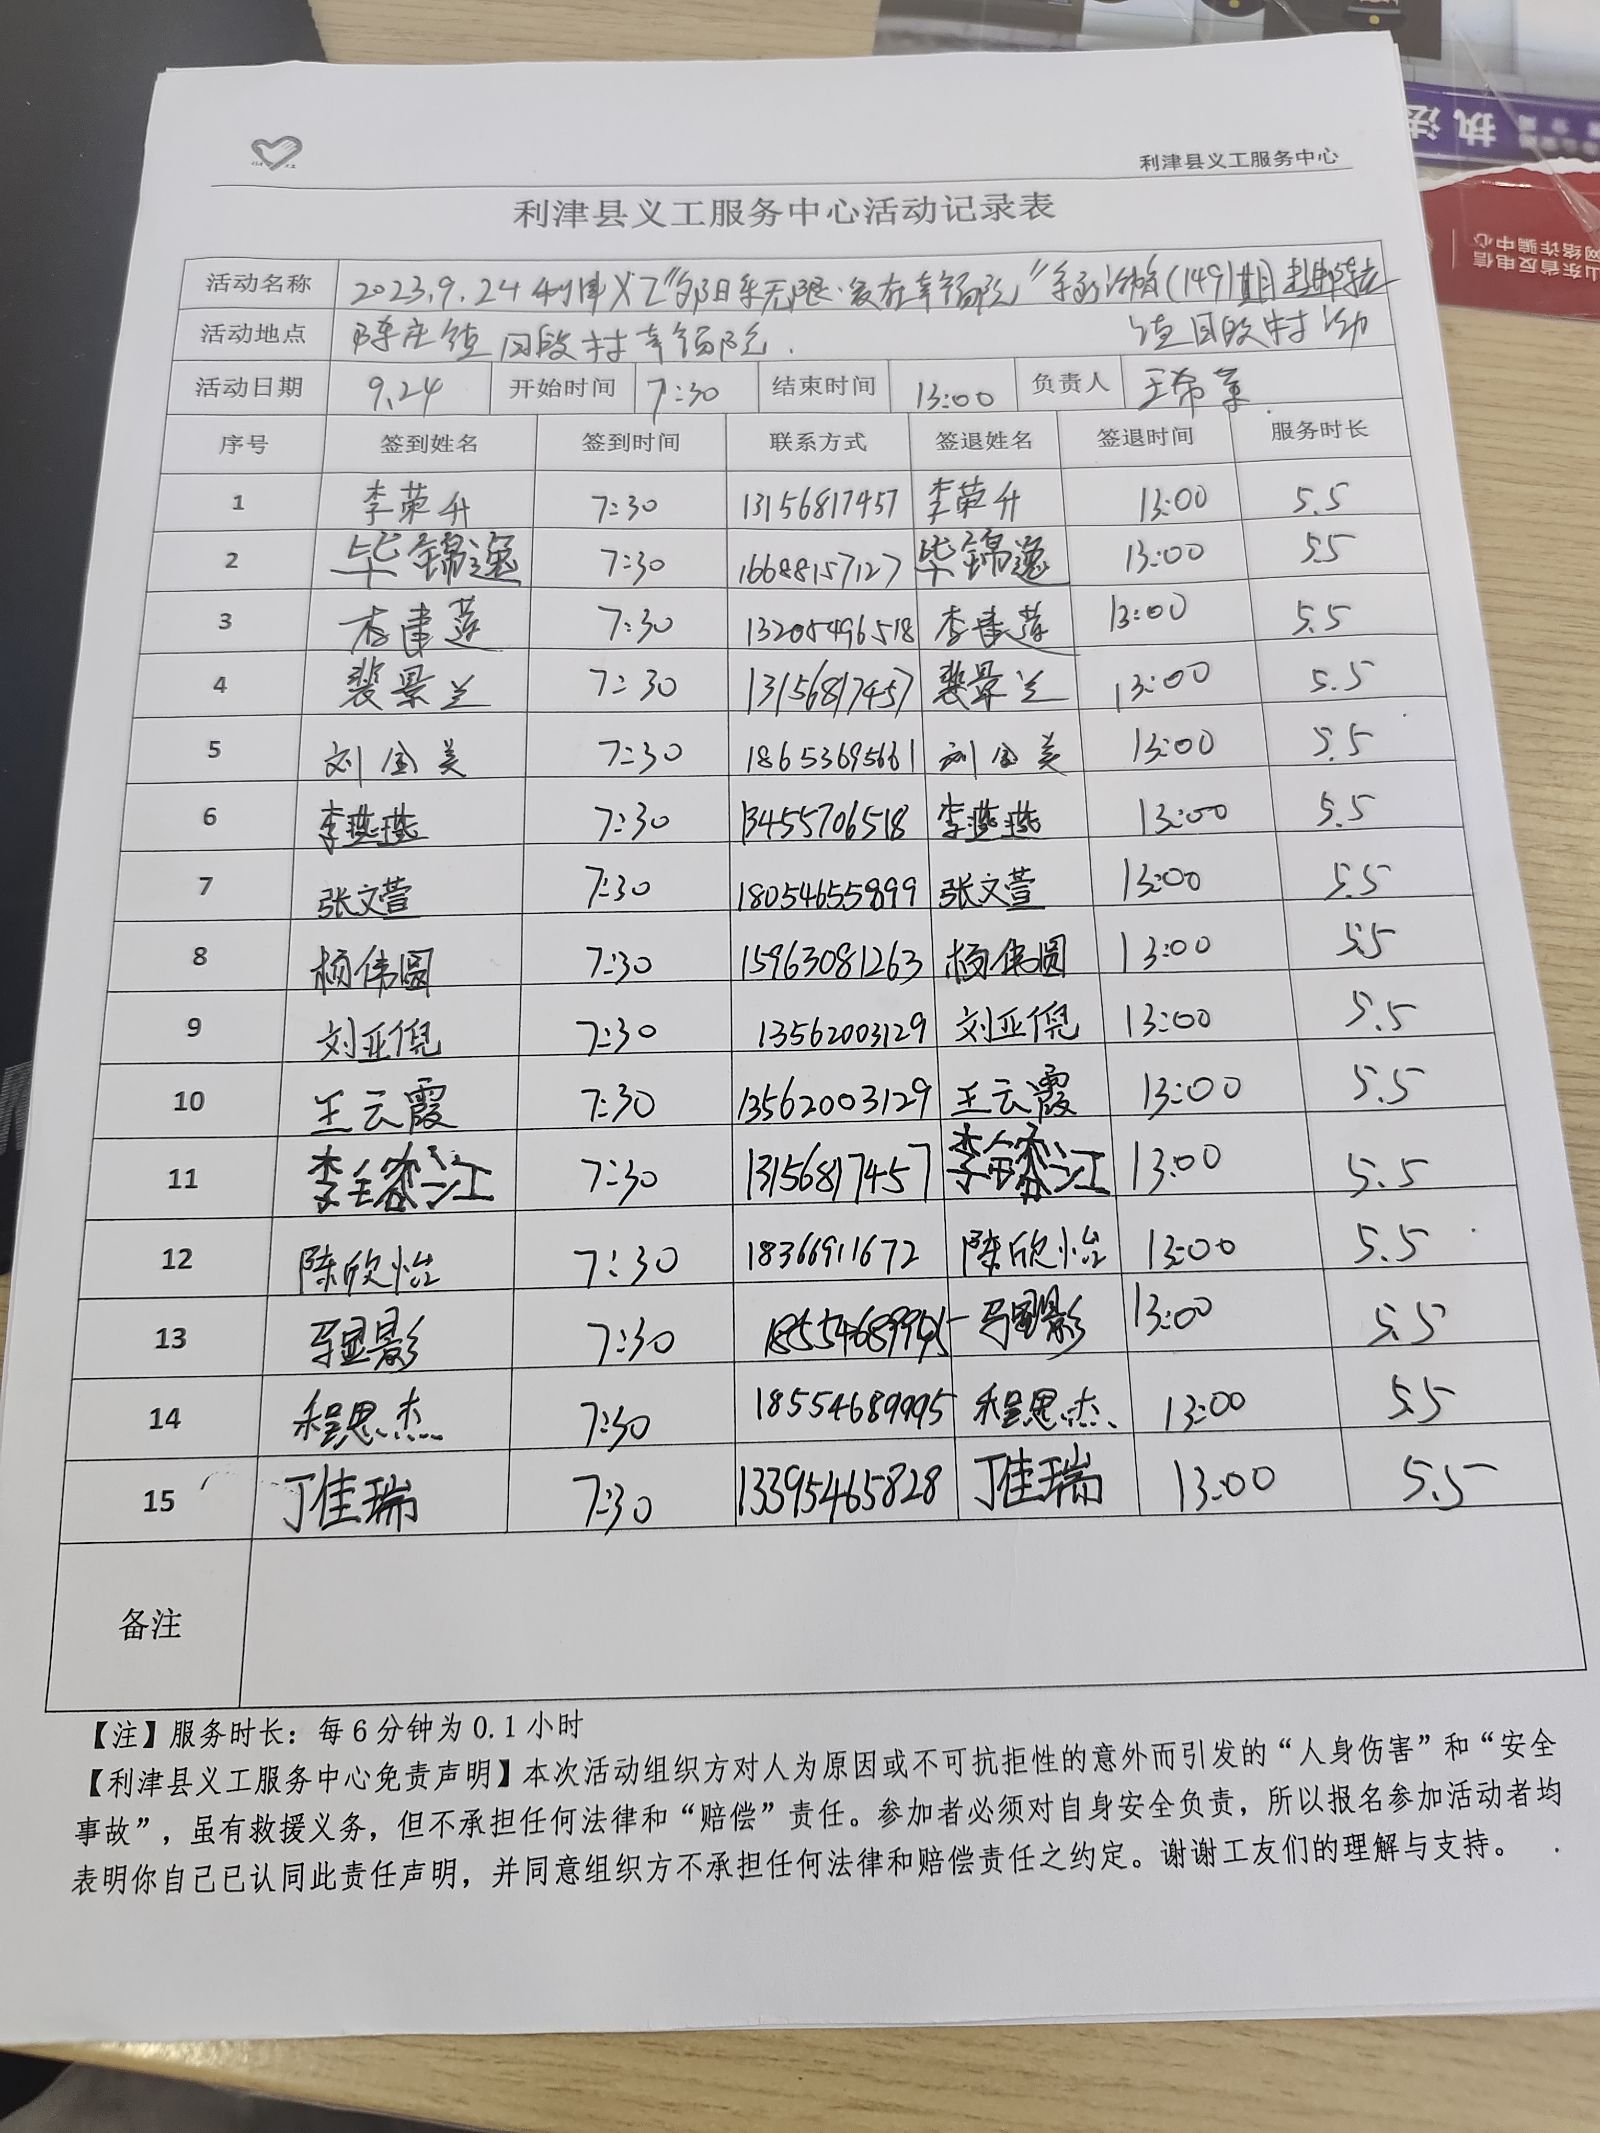 执法
山东省反电信
网络诈骗中心
利津县义工服务中心
利津县义工服务中心活动记录表
活动名称 2023.9.24利津义工“夕阳乐无限·爱在幸福院”系列活动(1491期)走进陈庄
活动地点 陈庄镇 幸福院. 镇 村活动
活动日期 9.24 开始时间 7:30 结束时间 13:00 负责人 王希
序号 签到姓名 签到时间 联系方式 签退姓名 签退时间 服务时长
1 李荣升 7:30 13156817457 李荣升 13:00 5.5
2 毕锦逸 7:30 16688157127 毕锦逸 13:00 5.5
3 李建莲 7:30 13205496518 李建莲 13:00 5.5
4 裴景兰 7:30 13156817457 裴景兰 13:00 5.5
5 刘国美 7:30 18653695661 刘国美 13:00 5.5
6 李燕燕 7:30 13455706518 李燕燕 13:00 5.5
7 张文萱 7:30 18054655899 张文萱 13:00 5.5
8 杨伟圆 7:30 15963081263 杨伟圆 13:00 5.5
9 刘亚倪 7:30 13562003129 刘亚倪 13:00 5.5
10 王云霞 7:30 13562003129 王云霞 13:00 5.5
11 李 7:30 13156817457 李 13:00 5.5
12 陈欣怡 7:30 18366911672 陈欣怡 13:00 5.5
13 马显影 7:30 18554689995 马显影 13:00 5.5
14 程思杰 7:30 18554689995 程思杰 13:00 5.5
15 丁佳瑞 7:30 13395465828 丁佳瑞 13:00 5.5
备注
【注】服务时长：每6分钟为0.1小时
【利津县义工服务中心免责声明】本次活动组织方对人为原因或不可抗拒性的意外而引发的“人身伤害”和“安全
事故”，虽有救援义务，但不承担任何法律和“赔偿”责任。参加者必须对自身安全负责，所以报名参加活动者均
表明你自己已认同此责任声明，并同意组织方不承担任何法律和赔偿责任之约定。谢谢工友们的理解与支持。